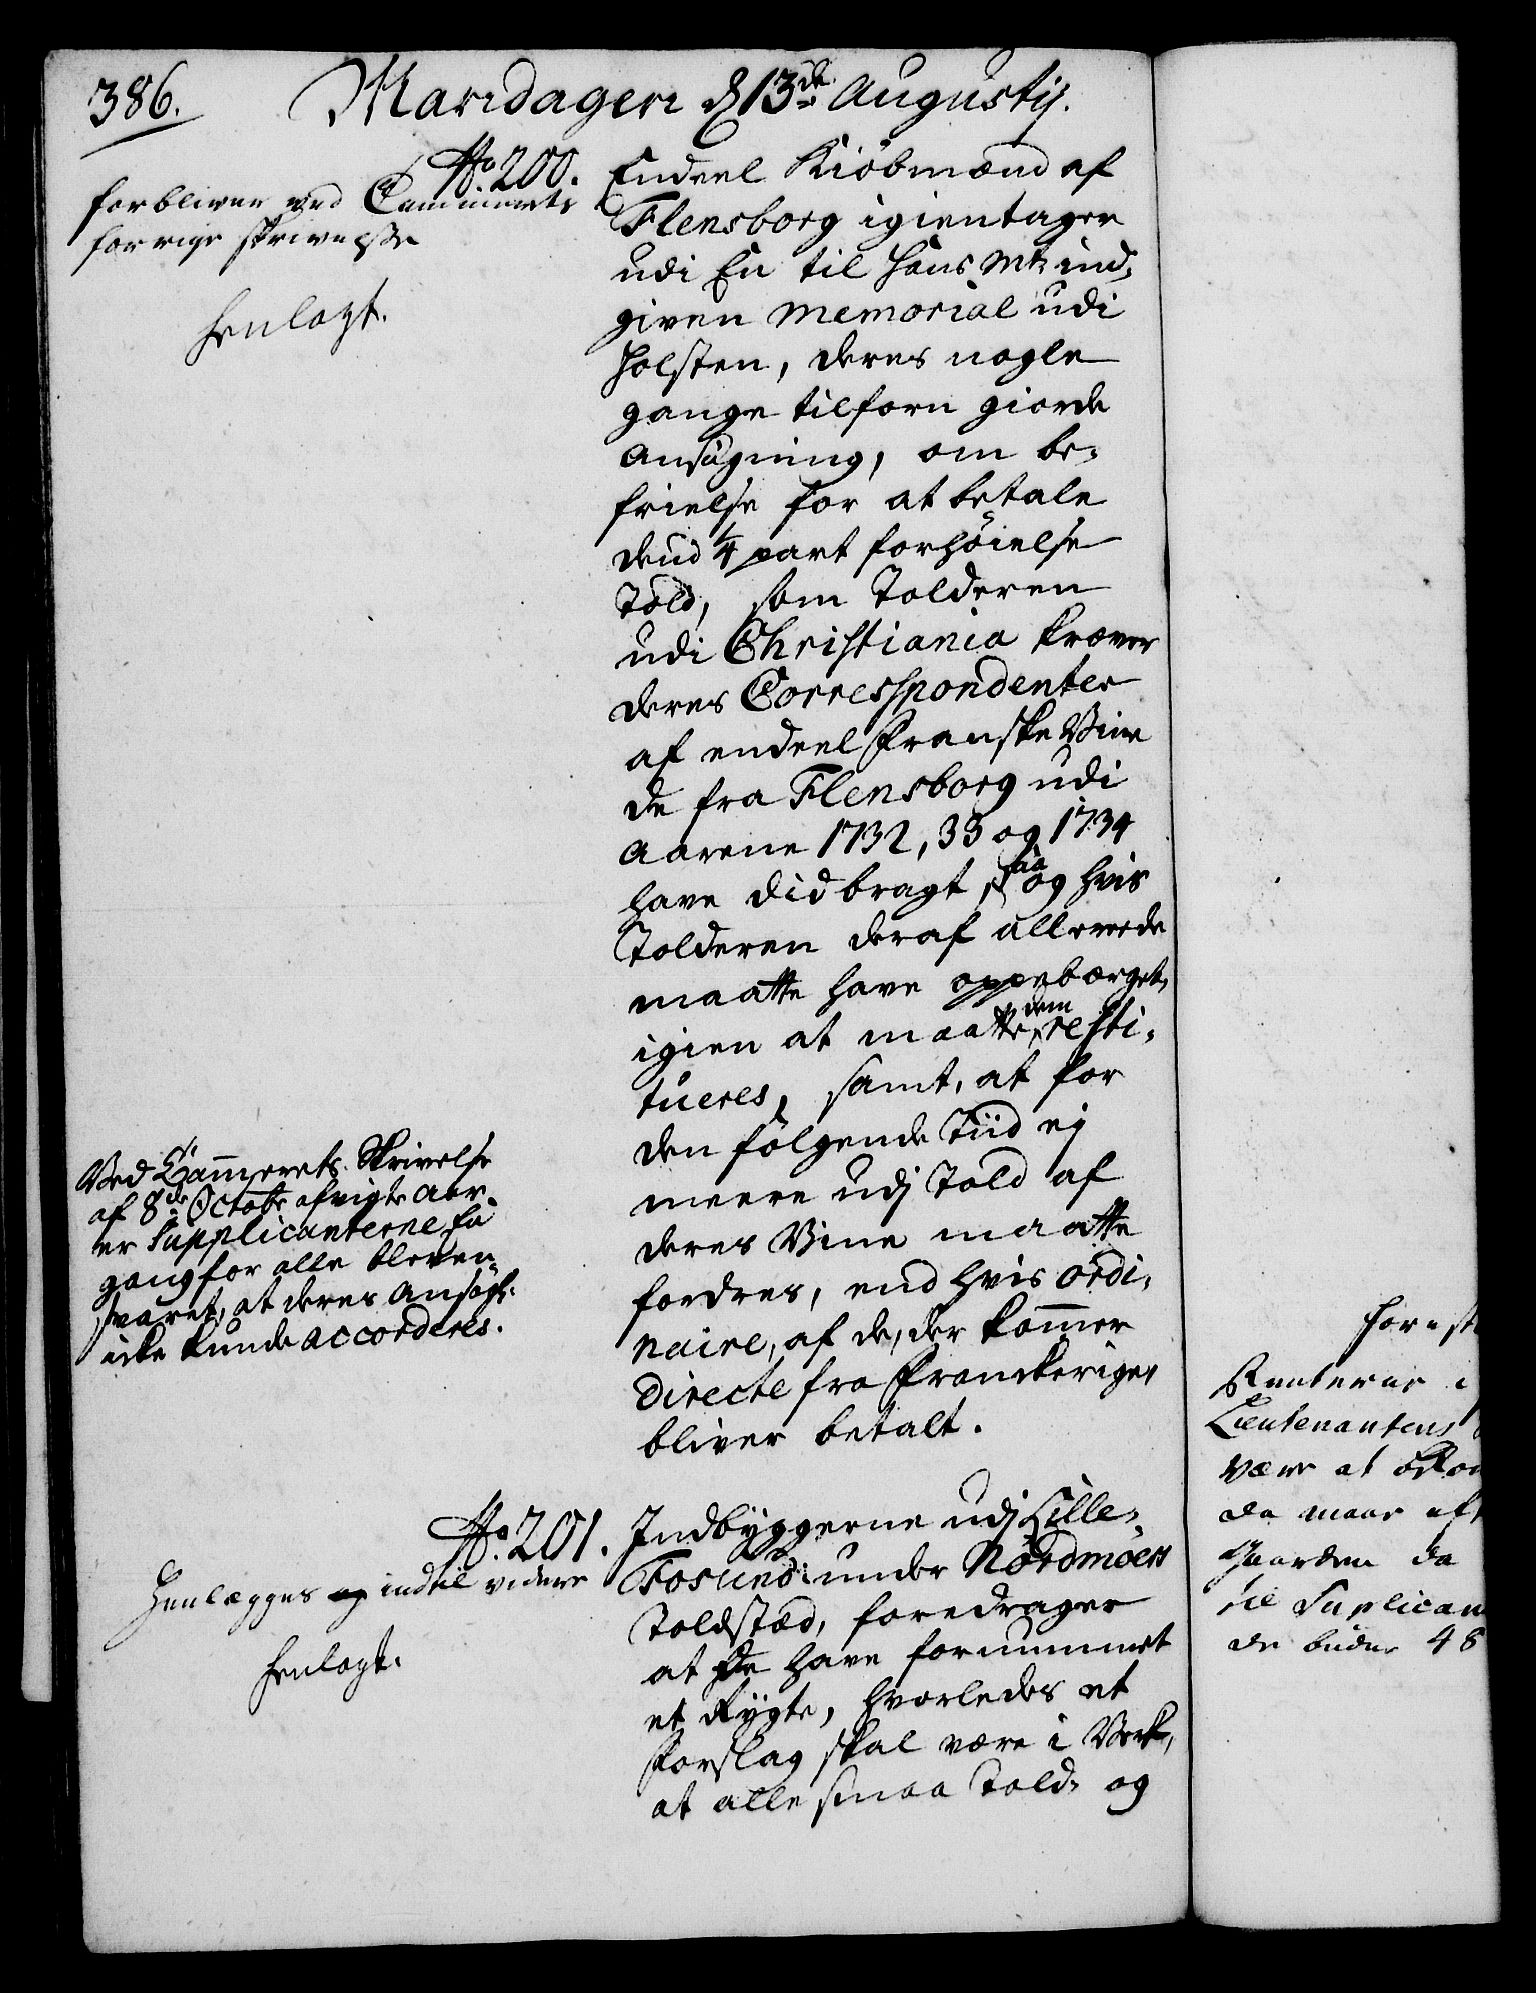 386.
Mandagen d 13de Augustij.
No. 200.
forbliver ved Cammerets
forrige skrivelse
henlagt.
Endeel Kiöbmænd af
Flensborg igientager
udi En til Hans Mt: ind-
given Memorial udi
Holsten, deres nogle
gange tilforn giorde
Ansögning, om be-
frielse for at betale
dend 1/4 part forhöielse
Told, som Tolderen
udi Christiania kræver
deres Correspondenter
af endeel Franske Viine
de fra Flensborg udi
Aarene 1732, 33 og 1734
have did bragt, saa og hvis
Tolderen deraf allerede
maatte have oppebærget,
igien at maatte dem resti-
tueres, samt, at for
den følgende Tiid ej
meere udj Told af
deres Viine maatte
fordres, end hvis ordi-
naire, af de, der kommer
directe fra Franckeriget
bliver betalt.
Ved Cammerets Skrivelse
af 8de Octobr afvigte Aar
er Supplicanterne en
gang for alle bleven
svaret, at deres Ansøg:
icke kunde accorderes.
No. 201.
Henlægges og indtil videre
henlagt.
Indbyggerne udj Lille-
Fosund under Nordmoers
Toldstæd, foredrager
at de have fornummet
et Rygte, hvorledes et
Forslag skal være i Verk,
at alle smaa Told- og
Renterne i
Lieutenantens
være at
da maae
Gaarden da
til Suplican
de buder 48